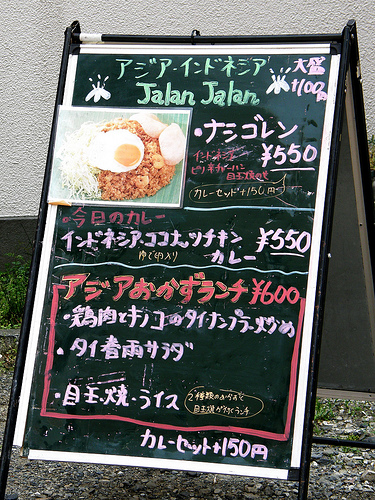 アジア・インドネシア
大盛
+100円
Jalan Jalan
・ナシゴレン
¥550
ピリ辛
目玉焼のせ
カレーセット+150円
・今日のカレー
インドネシア・ココナッツチキン
カレー
¥550
ゆで卵入り
アジアおかずランチ ¥600
・鶏肉とキノコのタイナンプラー炒め
・タイ春雨サラダ
・目玉焼・ライス
2種類のおかずと
目玉焼が付くランチ
カレーセット+150円